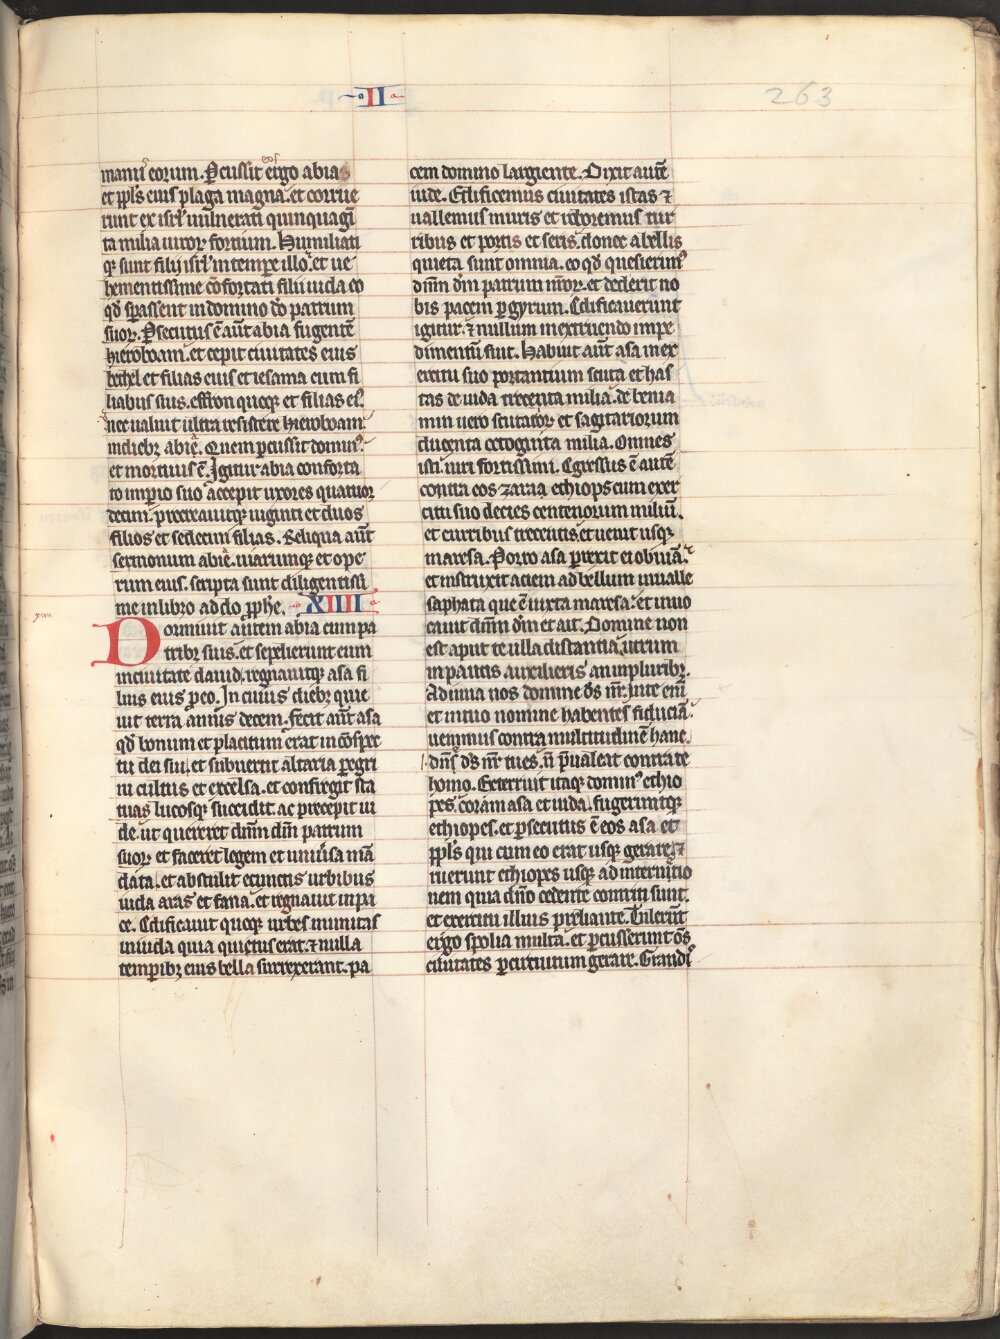 II
263
manū eorum. Percussit ergo eos abia
et ppl's eius plaga magna. et corrue
runt ex isrl' uulnerati quinquagī
ta milia uiror fortium. Humiliati
q; sunt filij isrl' in tempore illo. et ue
hementissime cōfortati filii iuda eo
qd sperassent in domino dō patrum
suor. Persecutus ē aūt abia fugentē
hieroboam. et cepit ciuitates eius
bethel et filias eius et iesama cum fi
liabus suis. effron quoq; et filias ei'.
nec ualuit ultra resistere hieroboam
in dieb; abie. Quem percussit domin'.
et mortuus ē. Igitur abia conforta
to imperio suo accepit uxores quatuor
decim. procreauitq; uiginti et duos
filios et sedecim filias. Reliqua aūt
sermonum abie. uiarumq; et ope
rum eius. scripta sunt diligentissi
me in libro addo pphe. XIIII
xiiii
Dormiuit autem abia cum pa
trib; suis. et sepelierunt eum
in ciuitate dauid. regnauitq; asa fi
lius eius p eo. In cuius dieb; quie
uit terra annis decem. fecit aūt asa
qd bonum et placitum erat in cōspec
tu dei sui. et subuertit altaria peregri
ni cultus et excelsa. et confregit sta
tuas lucosq; succidit. ac precepit iu
de. ut quereret dnm dm patrum
suor. et faceret legem et uniuersa mā
data. et abstulit e cunctis urbibus
iuda aras et fana. et regnauit in pa
ce. Edificauit quoq; urbes munitas
in iuda quia quietus erat. ⁊ nulla
temporib; eius bella surrexerant. pa
cem domino largiente. Dixit autē
iude. Edificemus ciuitates istas ⁊
uallemus muris et roboremus tur
ribus et portis et seris. donec a bellis
quieta sunt omnia. eo qd quesierim'
dnm dm patrum nror. et dederit no
bis pacem p gyrum. Edificauerunt
igitur. ⁊ nullum in extruendo impe
dimentū fuit. Habuit aūt asa in ex
ercitu suo portantium scuta et has
tas de iuda trecenta milia. de benia
min uero scutator et sagitariorum
ducenta octoginta milia. Omnes
isti uiri fortissimi. Egressus ē autē
contra eos zaraa ethiops cum exer
citu suo decies centenorum miliū.
et curribus trecentis et uenit usq;
maresa. Porro asa perrexit ei obuiā.
et instruxit aciem ad bellum in ualle
saphata que ē iuxta maresa. et inuo
cauit dnm dm et ait. Domine non
est aput te ulla distantia. utrum
in paucis auxilieris an in plurib;.
Adiuua nos domine ds nr. in te eni
et in tuo nomine habentes fiduciā.
uenimus contra multitudinē hanc.
dns ds nr tu es. n preualeat contra te
homo. Exterruit itaq; domin' ethio
pes coram asa et iuda. fugeruntq;
ethiopes. et persecutus ē eos asa et
ppl's qui cum eo erat usq; gerare. ⁊
ruerunt ethiopes usq; ad internitio
nem quia dno cedente contriti sunt.
et exercitu illius preliante. Tulerūt
ergo spolia multa. et percusserunt oēs
ciuitates p circuitum gerare. Grandi'